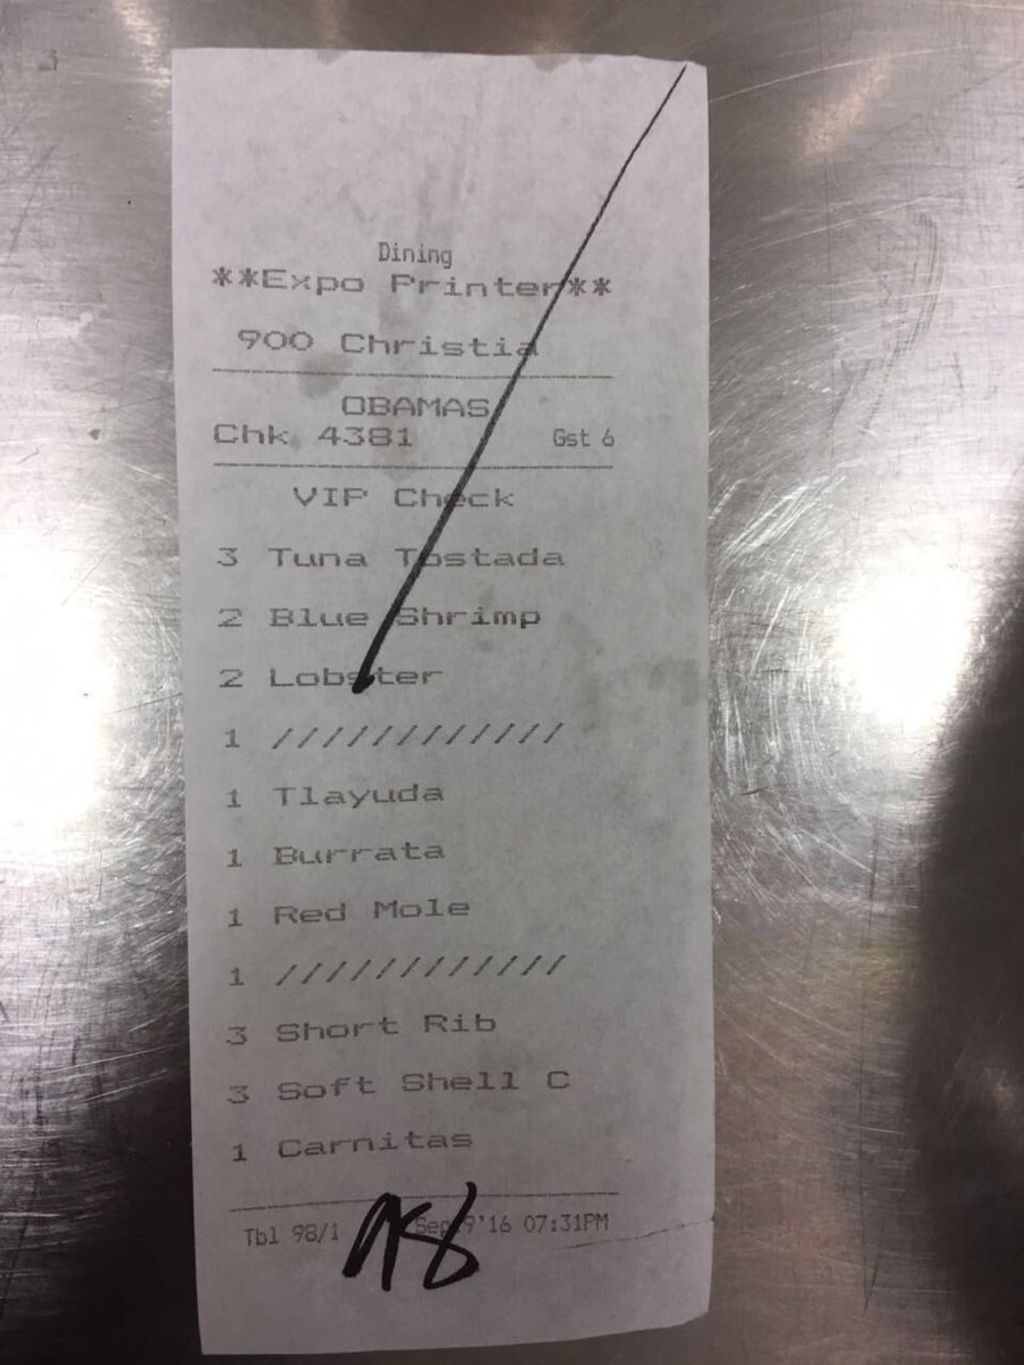 Dining
**Expo Printer**
900 Christia
OBAMAS
Chk 4381 Gst 6
VIP Check
3 Tuna Tostada
2 Blue Shrimp
2 Lobster
1 ////////////
1 Tlayuda
1 Burrata
1 Red Mole
1 ////////////
3 Short Rib
3 Soft Shell C
1 Carnitas
Tbl 98/1 Sep 9'16 07:31PM
98